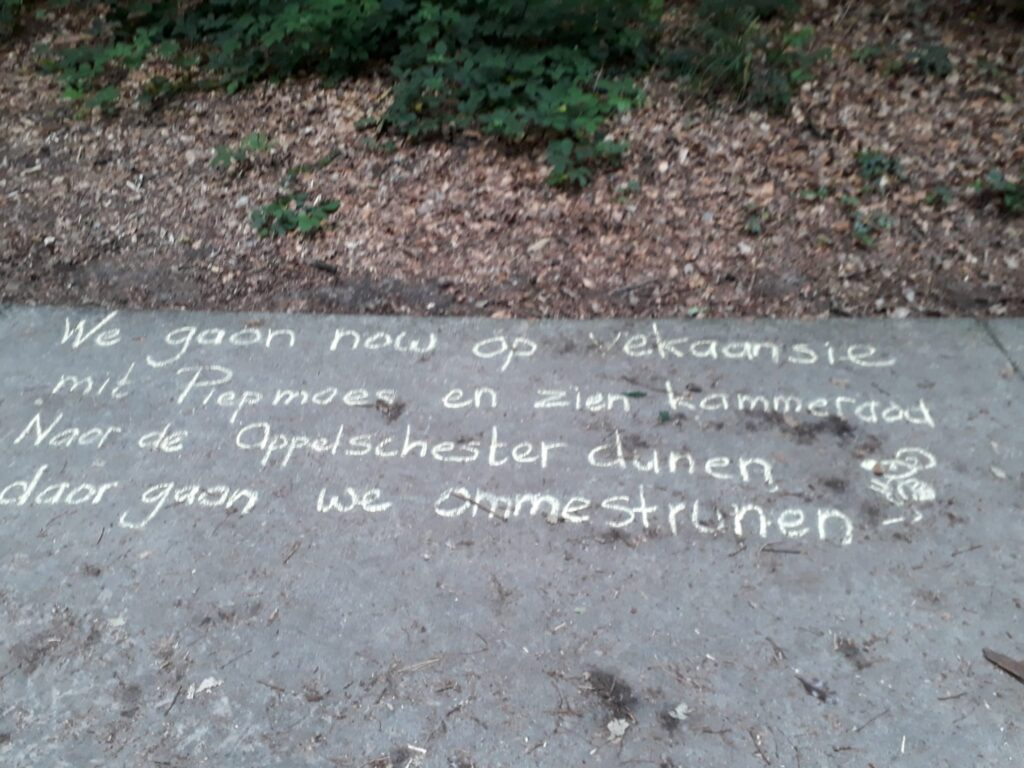 We gaon now op vekaansie
mit Piepmoes en zien kammeraod
Naor de Appelschester dunen
daor gaon we ommestrunen